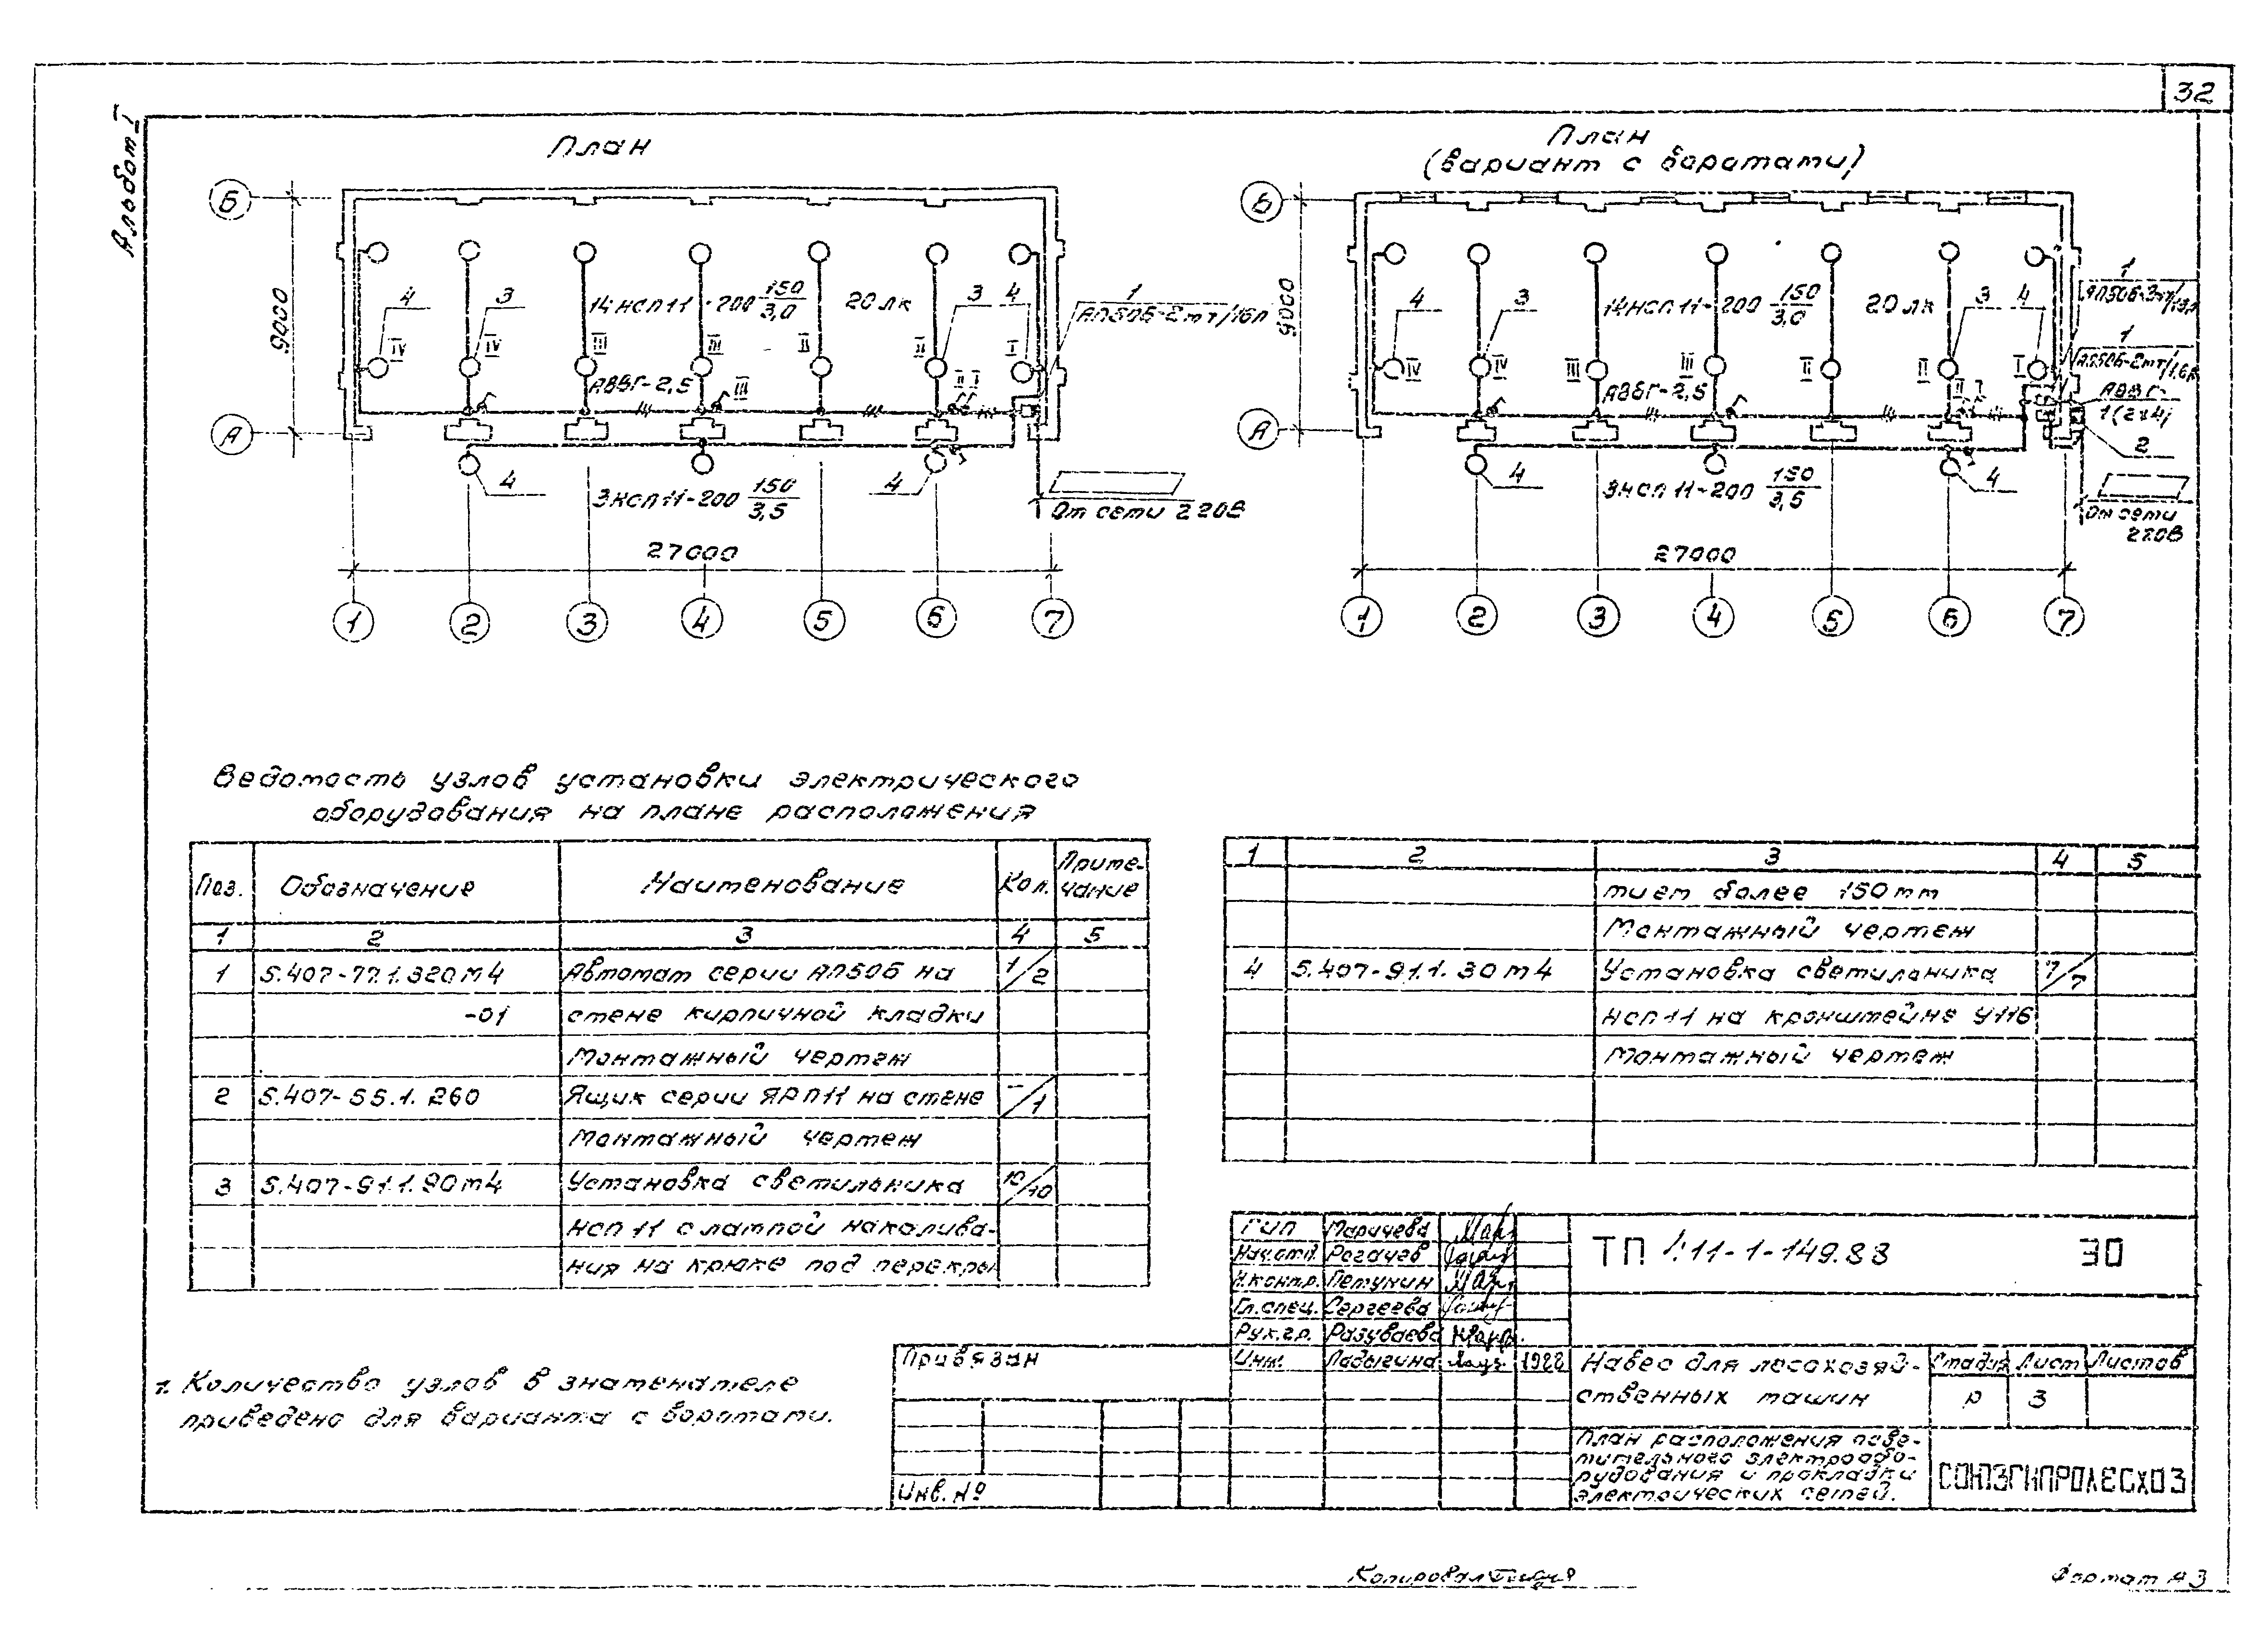 32
Альбом I
План
Б
А
9000
4
3
14 НСП 11-200 150/3,0
20 лк
3
4
1
АП50Б-2мт/1,6А
IV
IV
III
III
II
II
I
АВВГ-2,5
III
II
I
4
3 НСП 11-200 150/3,5
4
От сети 220В
27000
1
2
3
4
5
6
7
План
(вариант с воротами)
Б
А
9000
4
3
14 НСП 11-200 150/3,0
20 лк
3
4
1
1
АП50Б-2мт/1,6А
АВВГ-
1(2х4)
2
IV
IV
III
III
II
II
I
АВВГ-2,5
II
4
3 НСП 11-200 150/3,5
4
От сети
220В
27000
1
2
3
4
5
6
7
Ведомость узлов установки электрического
оборудования на плане расположения
Поз.
Обозначение
Наименование
Кол.
Приме-
чание
1
2
3
4
5
1
5.407-77.1.320м4
Автомат серии АП50Б на
1/2
-01
стене кирпичной кладки
Монтажный чертеж
2
5.407-55.1.260
Ящик серии ЯРП11 на стене
-/1
Монтажный чертеж
3
5.407-91.1.90м4
Установка светильника
10/10
НСП 11 с лампой накалива-
ния на крюке под перекры
1
2
3
4
5
тием более 150мм
Монтажный чертеж
4
5.407-91.1.30м4
Установка светильника
7/7
НСП 11 на кронштейне У116
Монтажный чертеж
1. Количество узлов в знаменателе
приведено для варианта с воротами.
Привязан
Инв. №
ГИП
Маричева
Нач.отд.
Рогачев
Н.контр.
Петунин
Гл.спец.
Сергеева
Рук.гр.
Разуваева
Инж.
Ладыгина
1988
ТП 411-1-149.88
ЭО
Навес для лесохозяй-
ственных машин
Стадия
Лист
Листов
Р
3
План расположения осве-
тительного электрообо-
рудования и прокладки
электрических сетей.
СОЮЗГИПРОЛЕСХОЗ
Копировал
Формат А3